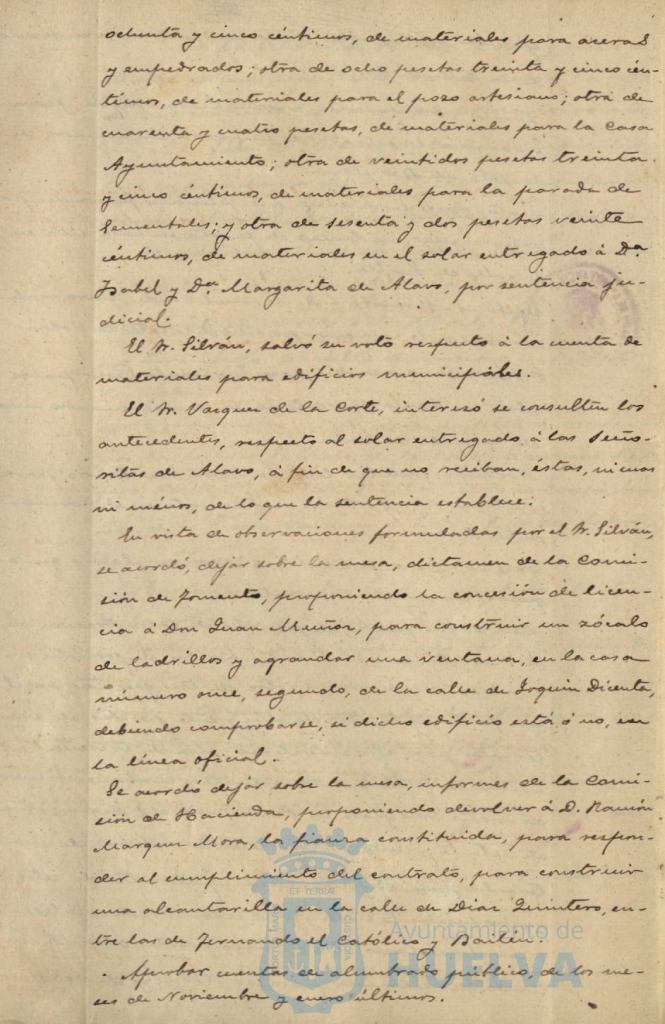 ochenta y cinco céntimos, de materiales para aceras
y empedrados; otra de ocho pesetas treinta y cinco cén-
timos, de materiales para el pozo artesiano; otra de
cuarenta y cuatro pesetas, de materiales para la Casa
Ayuntamiento; otra de veintidos pesetas treinta
y cinco céntimos, de materiales para la parada de
Sementales; y otra de sesenta y dos pesetas veinte
céntimos, de materiales en el solar entregado á Dª
Isabel y Dª Margarita de Alavo, por sentencia ju-
dicial.
El Sr. Silván, salvó su voto respecto á la cuenta de
materiales para edificios municipales.
El Sr. Vazquez de la Corte, interesó se consulten los
antecedentes, respecto al solar entregado á las Seño-
ritas de Alavo, á fin de que no reciban, éstas, ni mas
ni ménos, de lo que la sentencia establece.
En vista de observaciones formuladas por el Sr. Silván,
se acordó, dejar sobre la mesa, dictamen de la Comi-
sión de Fomento, proponiendo la concesión de licen-
cia á Don Juan Muñoz, para construir un zócalo
de ladrillos y agrandar una ventana, en la casa
número once, segundo, de la calle de Joquin Dicenta,
debiendo comprobarse, si dicho edificio está ó no, en
la línea oficial.
Se acordó dejar sobre la mesa, informes de la Comi-
sión de Hacienda, proponiendo devolver á D. Ramón
Marquez Mora, la fianza constituida, para respon-
der al cumplimiento del contrato, para construir
una alcantarilla en la calle de Diaz Quintero, en-
tre las de Fernando el Católico y Bailén.
Aprobar cuentas de alumbrado público, de los me-
ses de Noviembre y enero últimos.
Ayuntamiento de
HUELVA